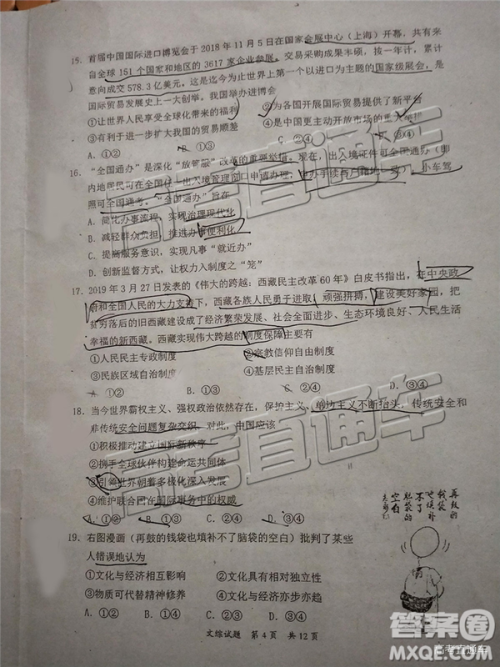 15. 首届中国国际进口博览会于 2018 年 11 月 5 日在国家会展中心（上海）开幕，共有来
自全球 151 个国家和地区的 3617 家企业参展。交易采购成果丰硕，按一年计，累计
意向成交 578.3 亿美元。这是迄今为止世界上第一个以进口为主题的国家级展会，是
国际贸易发展史上一大创举。我国举办进博会
①让世界人民享受全球化带来的福利 ②为各国开展国际贸易提供了新平台
③有利于进一步扩大我国的贸易顺差 ④是中国更主动开放市场的重要
A. ①② B. ①③ C. ②④ D. ③④
16. “全国通办”是深化“放管服”改革的重要举措。现在，出入境证件可全国通办
内地居民可在全国任一出入境管理窗口申请办理，
照可全国通考。“全国通办”旨在
A. 简化办事流程，实现治理现代化
B. 减轻群众负担，推进办事便利化
C. 创新服务方式，实现凡事“就近办”
D. 创新监督方式，让权力入制度之“笼”
17. 2019 年 3 月 27 日发表的《伟大的跨越：西藏民主改革 60 年》白皮书指出，在中央政
府和全国人民的大力支持下，西藏各族人民勇于进取，顽强拼搏，建设美好家园，把
贫穷落后的旧西藏建设成了经济繁荣发展、社会全面进步、生态环境良好、人民生活
幸福的新西藏。西藏实现伟大跨越的制度保障主要有
①人民民主专政制度 ②宗教信仰自由制度
③民族区域自治制度 ④基层民主自治制度
A. ①② B. ①③ C. ②④ D. ③④
18. 当今世界霸权主义、强权政治依然存在，保护主义、单边主义不断抬头，传统安全和
非传统安全问题复杂交织。对此，中国应该
①积极推动建立国际新秩序
②携手全球伙伴构建命运共同体
③引领世界朝着多极化深入发展
④维护联合国在国际事务中的权威
A. ①③ B. ①④ C. ②④ D. ③④
19. 右图漫画（再鼓的钱袋也填补不了脑袋的空白）批判了某些
人错误地认为
①文化与经济相互影响 ②文化具有相对独立性
③物质可代替精神修养 ④文化与经济亦步亦趋
A. ①② B. ①③ C. ②④ D. ③④
再鼓的
钱袋也
填补
不了
脑袋的
空白
文综试题 第 4 页 共 12 页
高考直通车
高考直通车
答案圈